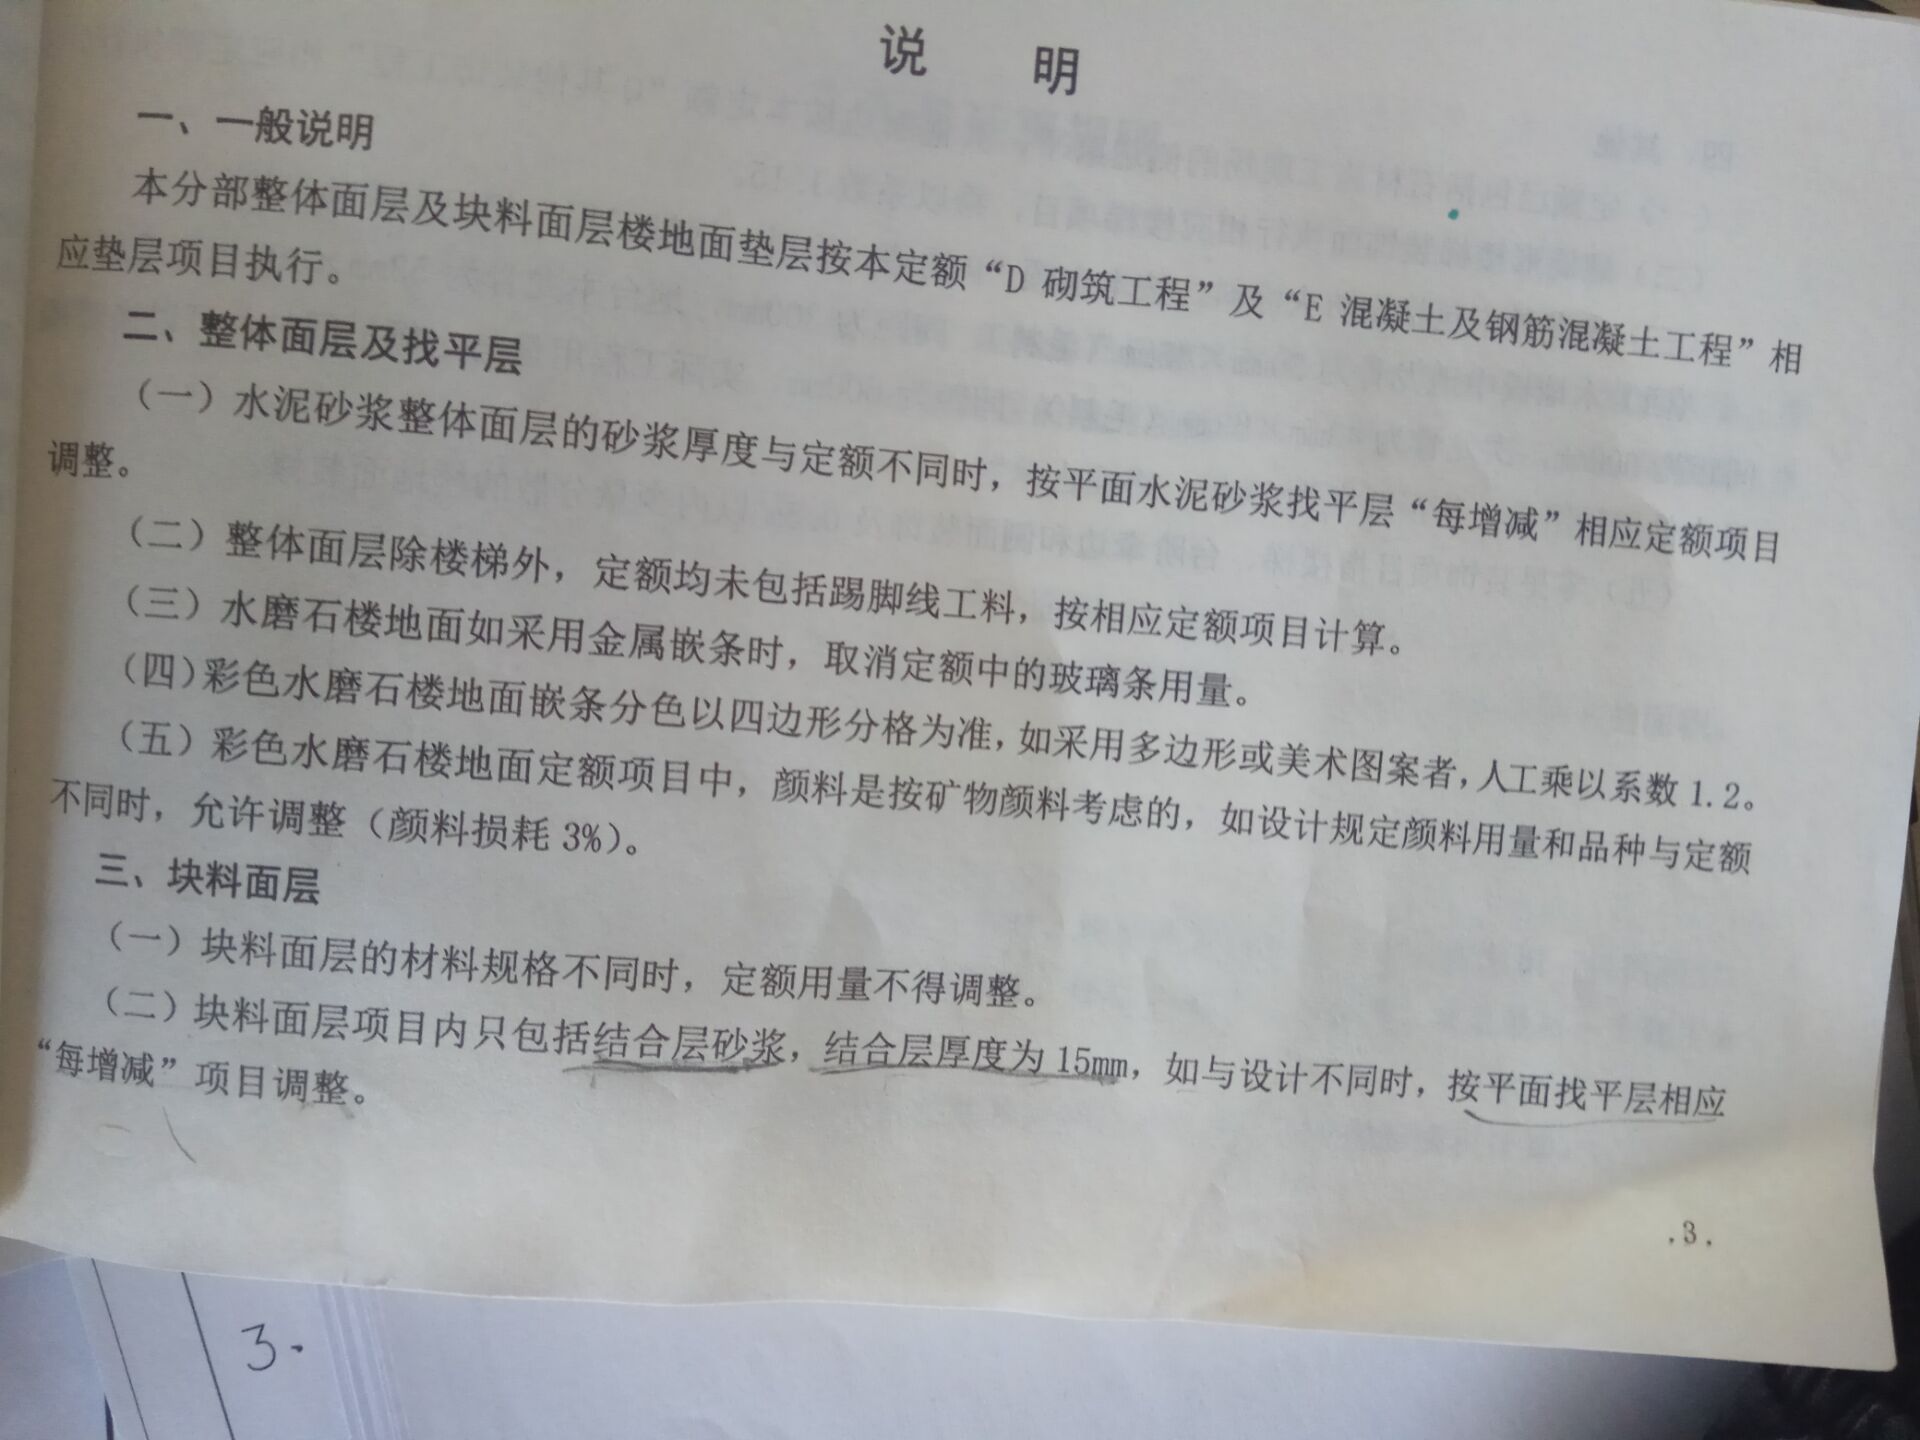 说 明
一、一般说明
本分部整体面层及块料面层楼地面垫层按本定额“D 砌筑工程”及“E 混凝土及钢筋混凝土工程”相
应垫层项目执行。
二、整体面层及找平层
（一）水泥砂浆整体面层的砂浆厚度与定额不同时，按平面水泥砂浆找平层“每增减”相应定额项目
调整。
（二）整体面层除楼梯外，定额均未包括踢脚线工料，按相应定额项目计算。
（三）水磨石楼地面如采用金属嵌条时，取消定额中的玻璃条用量。
（四）彩色水磨石楼地面嵌条分色以四边形分格为准，如采用多边形或美术图案者，人工乘以系数1.2。
（五）彩色水磨石楼地面定额项目中，颜料是按矿物颜料考虑的，如设计规定颜料用量和品种与定额
不同时，允许调整（颜料损耗3%）。
三、块料面层
（一）块料面层的材料规格不同时，定额用量不得调整。
（二）块料面层项目内只包括结合层砂浆，结合层厚度为15mm，如与设计不同时，按平面找平层相应
“每增减”项目调整。
.3.
3.